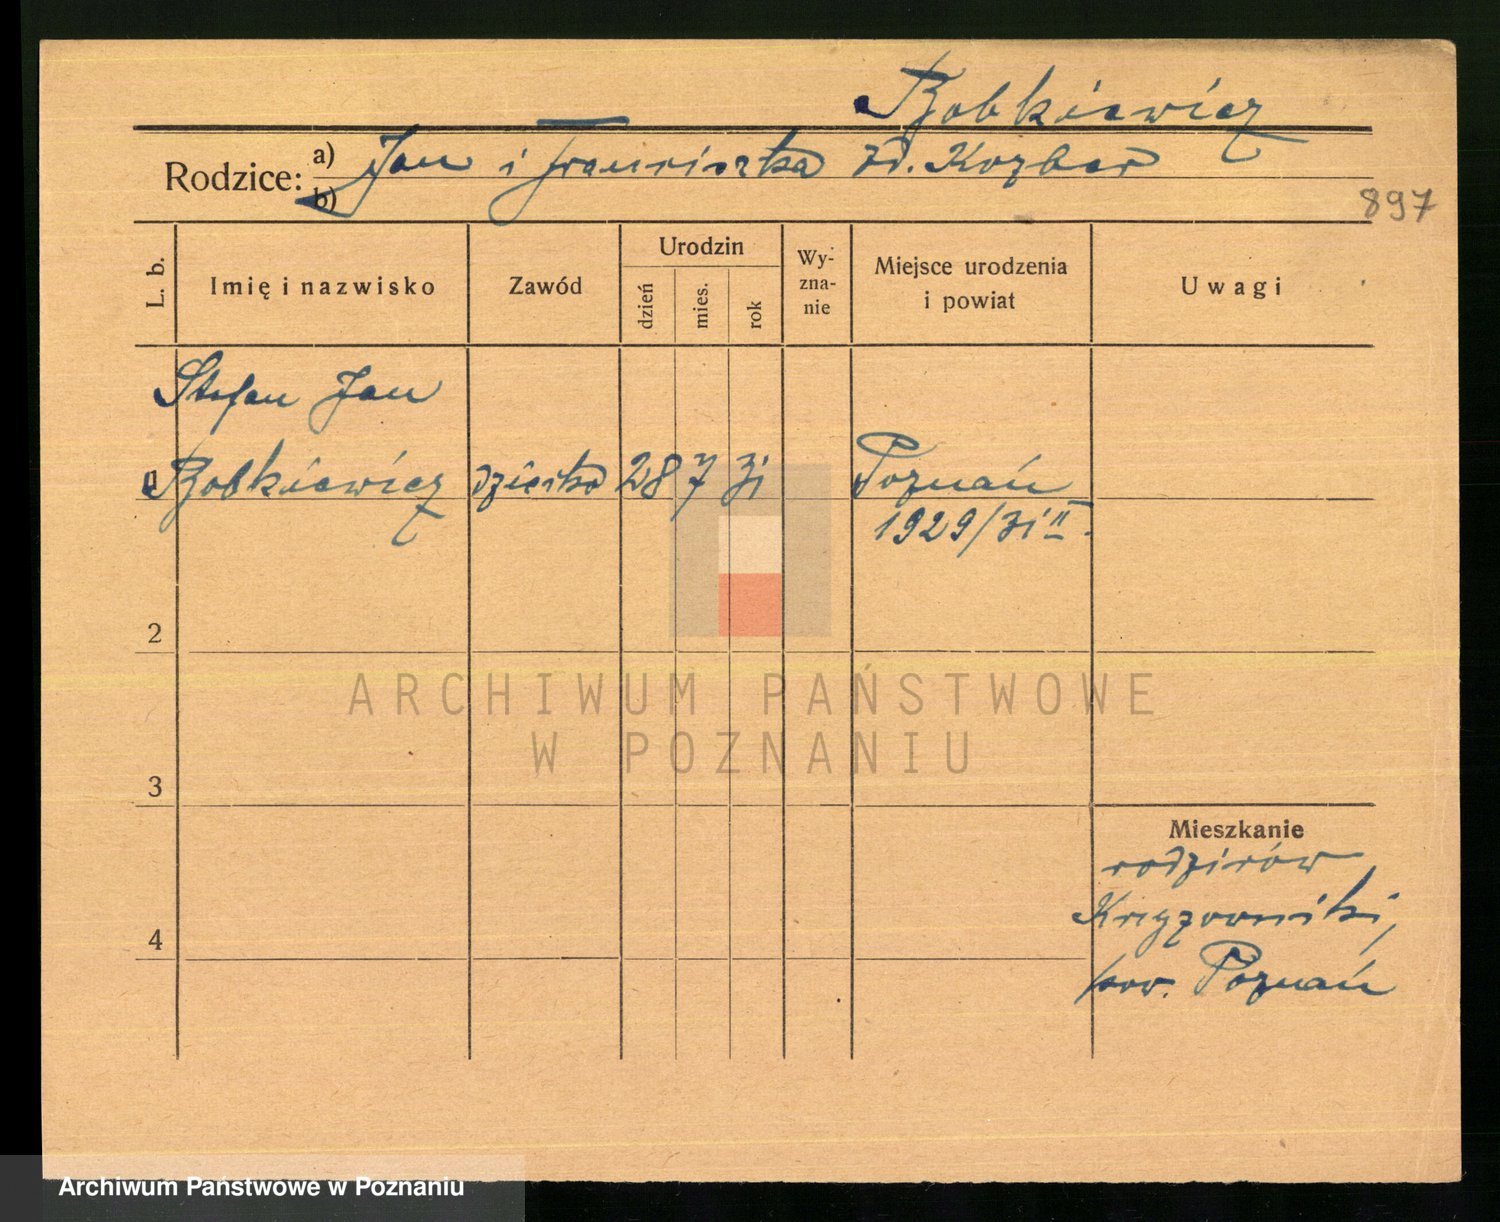 Bobkiewicz
Rodzice: a) Jan i Franciszka zd. Kozber
b)
897
L. b.
Imię i nazwisko
Zawód
Urodzin
dzień
mies.
rok
Wy-
zna-
nie
Miejsce urodzenia
i powiat
Uwagi
Stefan Jan
1 Bobkiewicz dziecko 28 7 31 Poznań
1929/31 II.
2
3
4
Mieszkanie
rodziców
Krzyżowniki,
pow. Poznań
ARCHIWUM PAŃSTWOWE
W POZNANIU
Archiwum Państwowe w Poznaniu